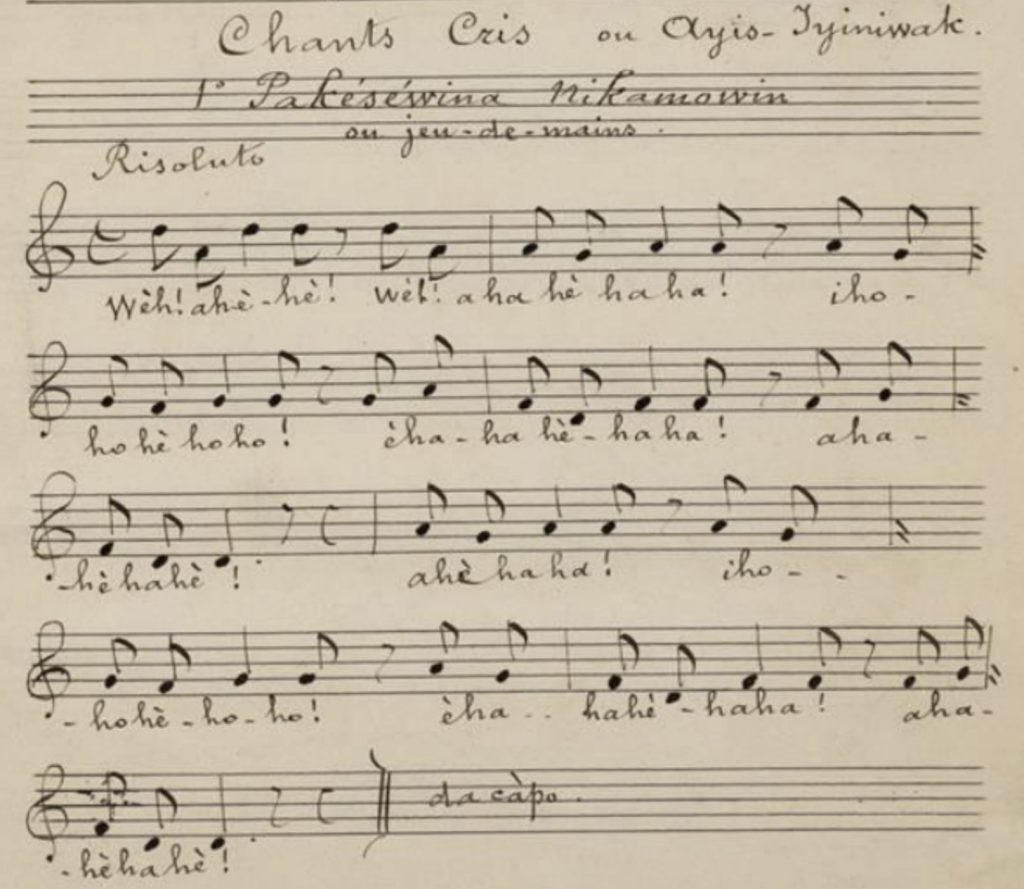 Chants Cris ou Ayis-Iyiniwak.
1° Pakéséwina Nikamowin
ou jeu-de-mains.
Risoluto
Wèh! ahè-hè! Wèh! aha hè haha! iho-
ho hè hoho! èha-ha hè-haha! aha-
-hè hahè! ahè haha! iho--
-hohè-ho-ho! èha.. hahè-haha! aha-
da càpo.
-hèhahè!